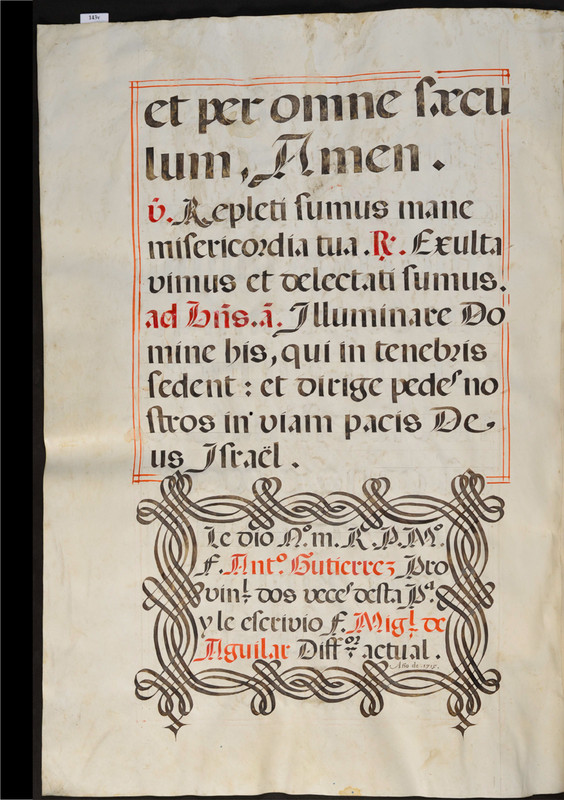 145v
et per omne sæcu
lum, Amen.
v̇. Repleti sumus mane
misericordia tua. R̷. Exulta
vimus et delectati sumus.
ad Bñs. ã. Illuminare Do
mine his, qui in tenebris
sedent: et dirige pedes no
stros in viam pacis De
us Israël.
Le dio N.º m. R. P. M.º
F. Ant.º Gutierrez Pro
vin.l dos veces desta P.ª
y le escrivio F. Mig.l de
Aguilar Diff.or actual.
Año de 1715.